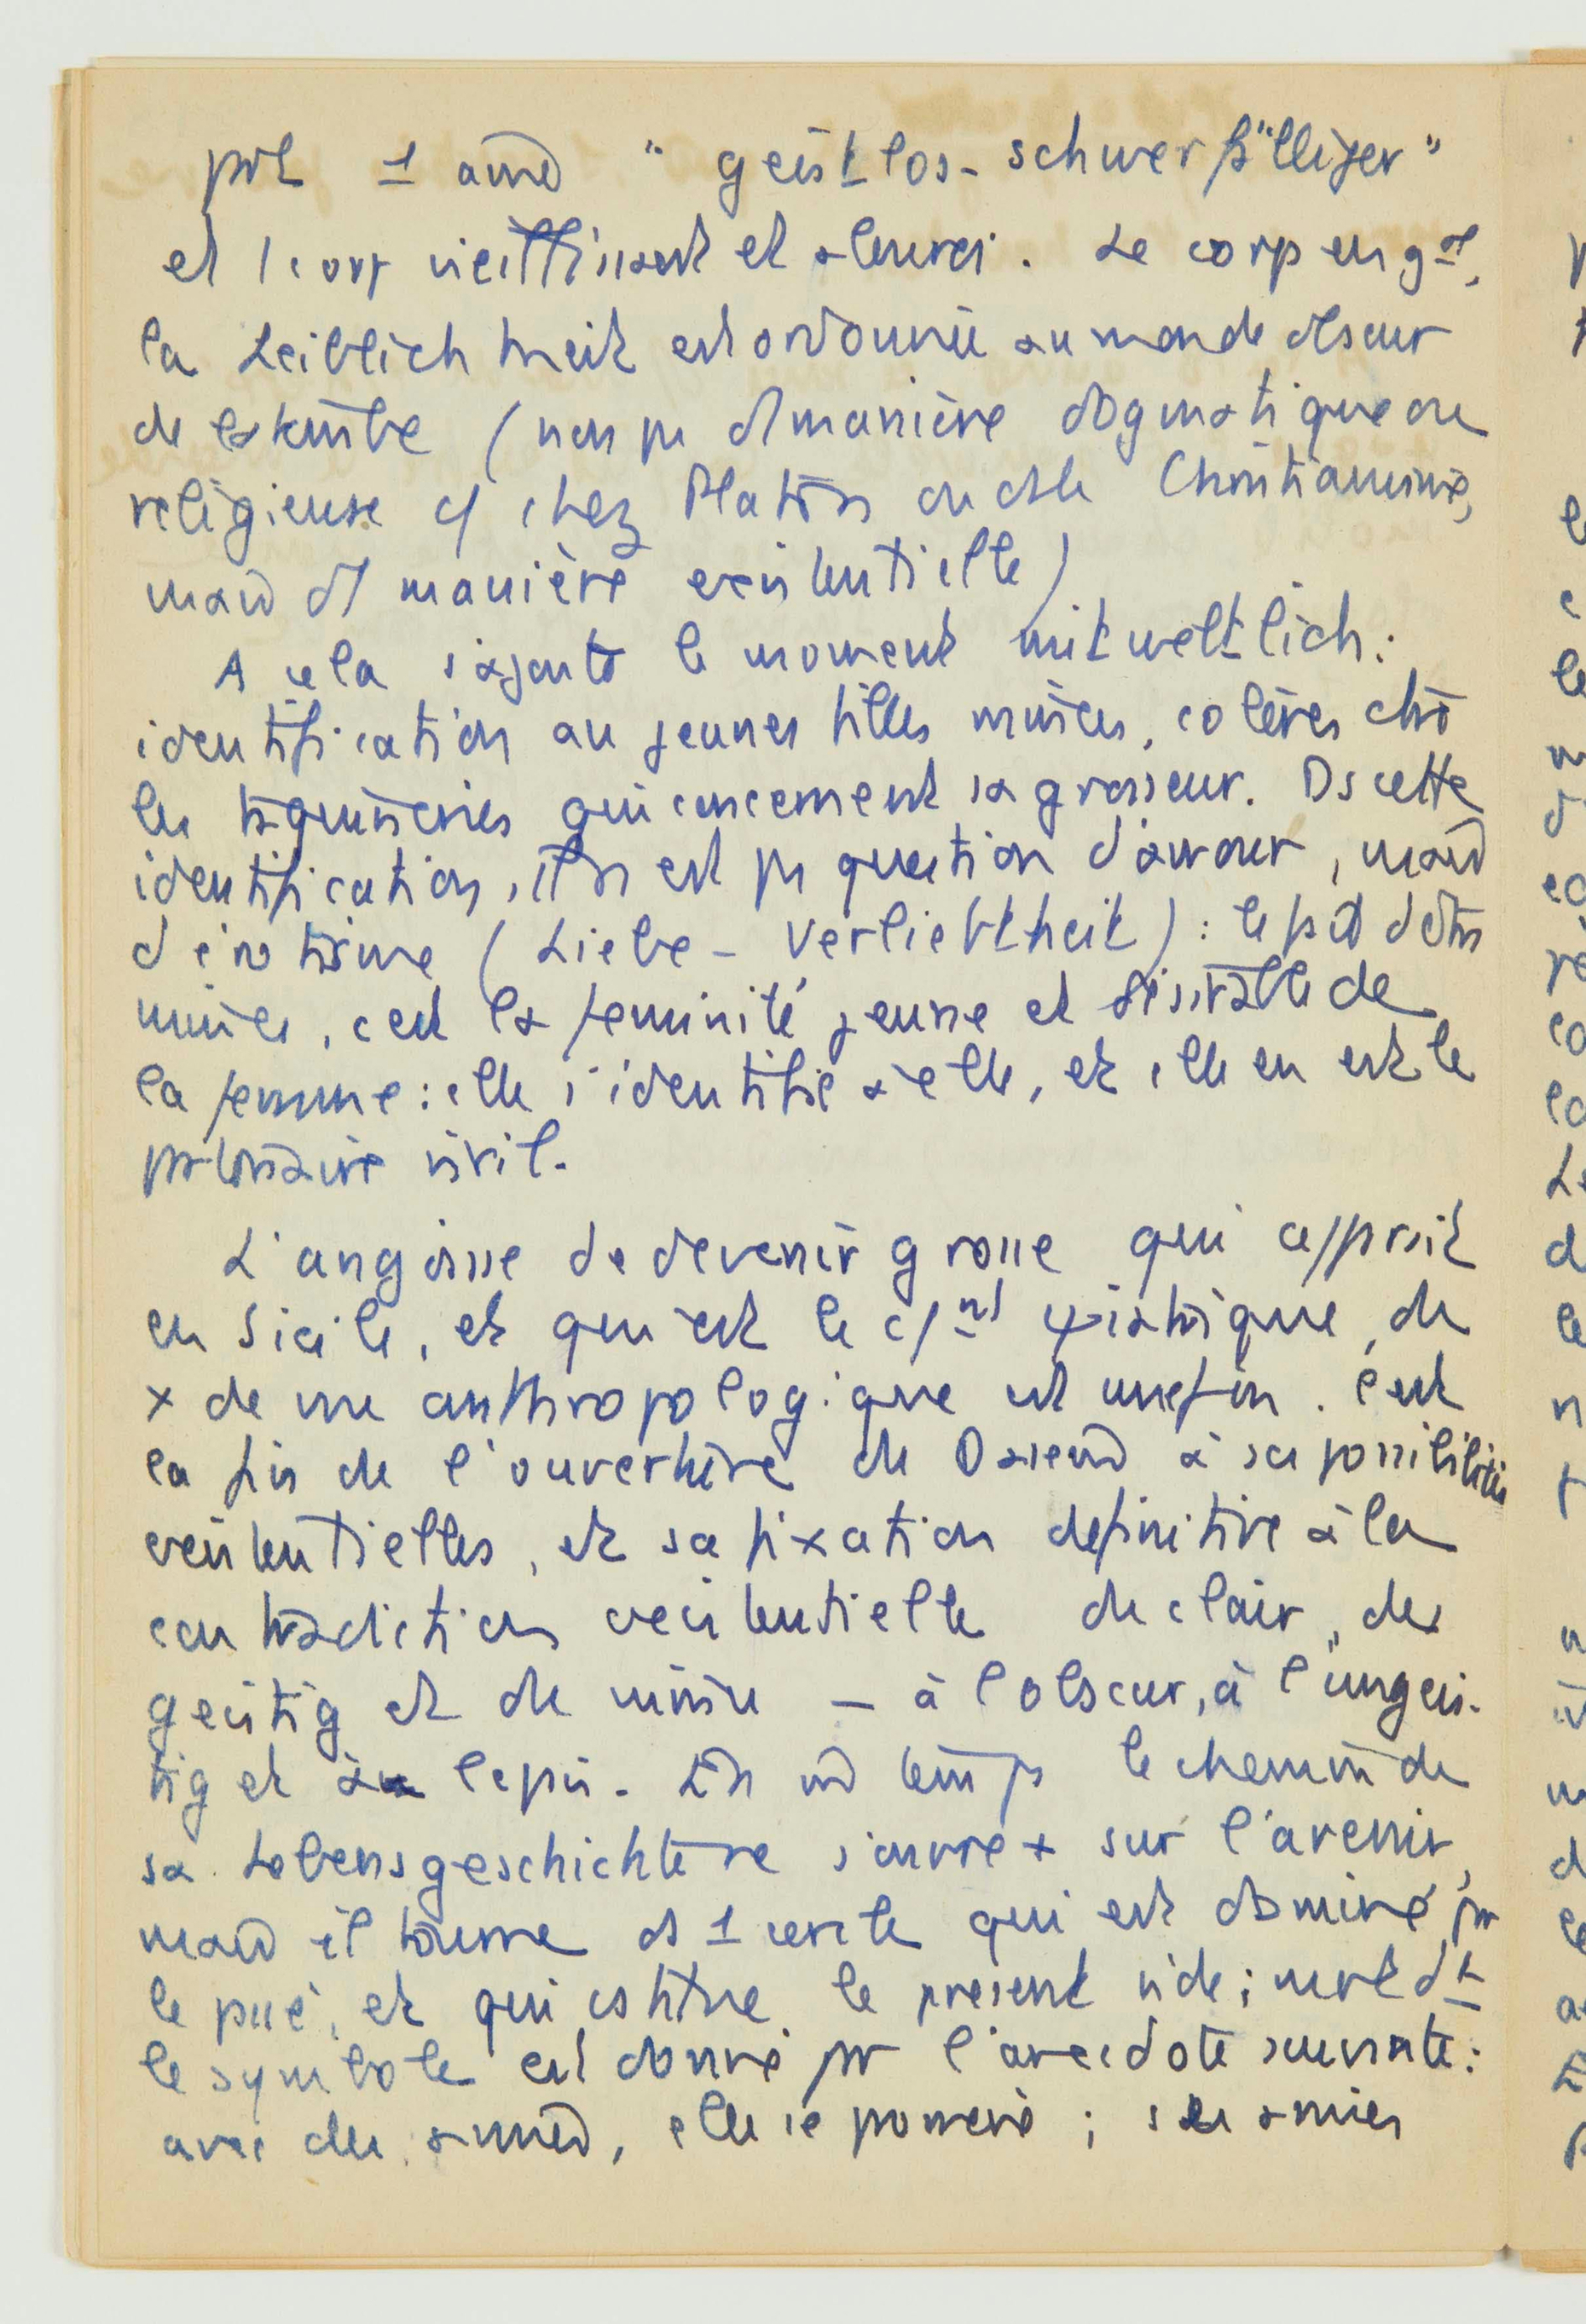 pnt 1 amas "geistlos-schwerfälliger"
et 1 corps vieillissant et alourdi. Le corps en gal,
la Leiblichkeit est ordonnée au monde obscur
de la tombe (non pas d' manière dogmatique ou
religieuse c/ chez Platon ou ds le Christianisme,
mais d' manière existentielle)
A cela s'ajoute le moment mitweltlich:
identification au jeunes filles minces, colères ctre
les taquineries qui concernent sa grosseur. Ds cette
identification, il n'est pas question d'amour, mais
d'érotisme (Liebe - Verliebtheit): le fait d'être
mince, c'est la féminité jeune et désirable de
la femme: elle s'identifie à elle, et elle en est le
partenaire viril.
L'angoisse de devenir grosse qui apparait
en Sicile, et qui est le ct psychiatrique, du
x de vue anthropologique est une fin. C'est
la fin de l'ouverture du Dasein à ses possibilités
existentielles, et sa fixation définitive à la
contradiction existentielle du clair, du
geistig et du mince — à l'obscur, à l'ungeis-
tig et à l'épais. En m temps le chemin de
sa Lebensgeschichte ne s'ouvre + sur l'avenir,
mais il tourne ds 1 cercle qui est dominé par
le passé, et qui constitue le présent vide; mort dt
le symbole est donné par l'anecdote suivante:
avec des amies, elle se promène; ses amies